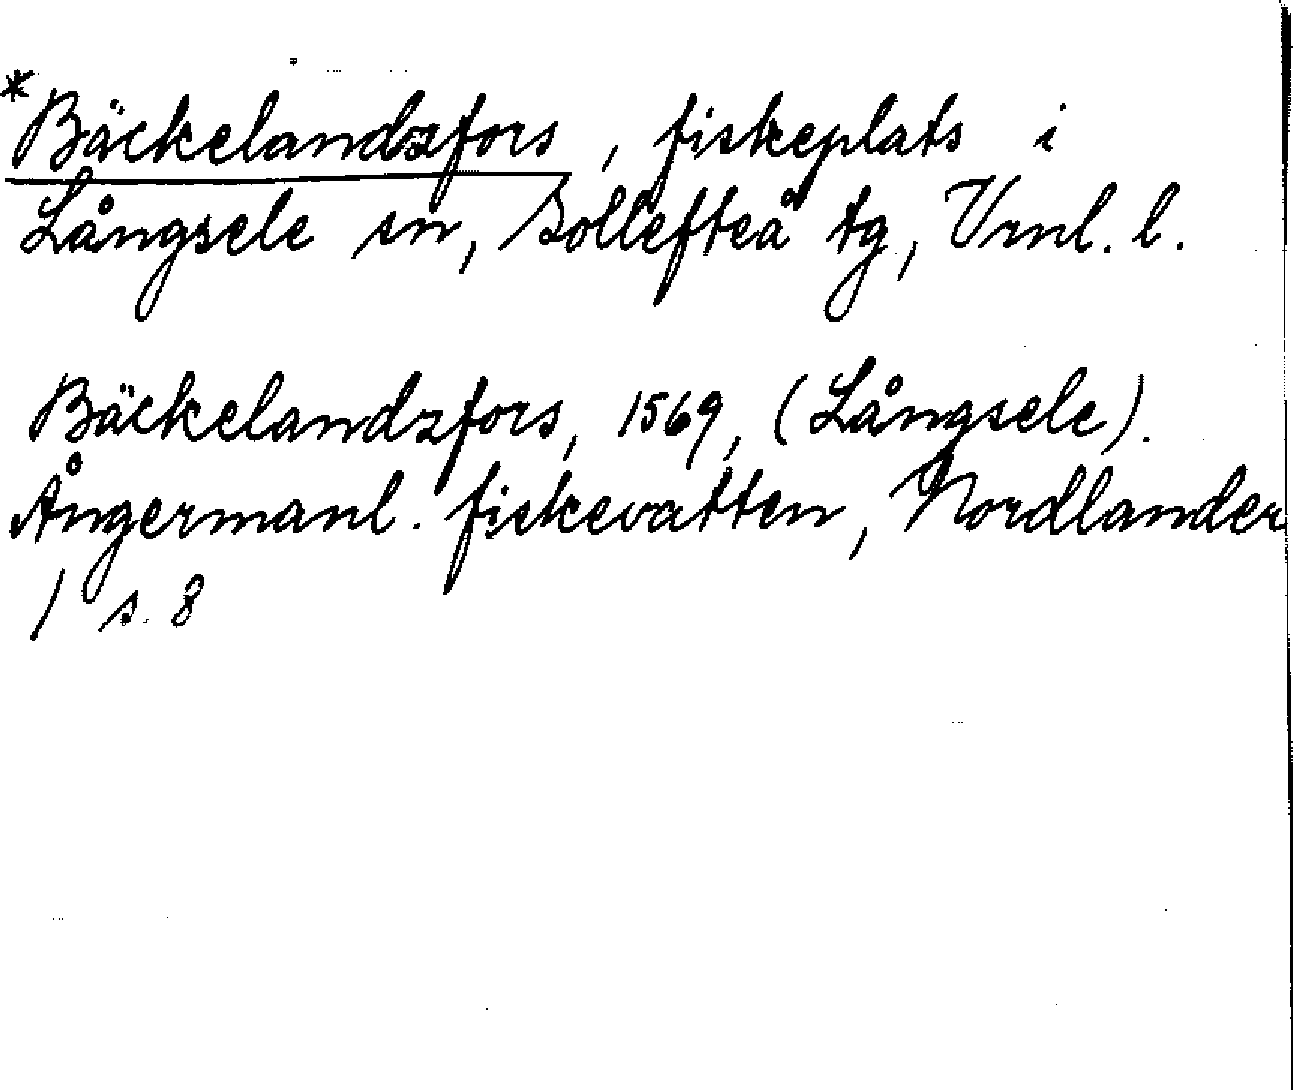 *Bäckelandzfors, fiskeplats i
Långsele sn, Sollefteå tg, Vrnl. l.
Bäckelandzfors, 1569, (Långsele).
Ångermanl. fiskevatten, Nordlander
1 s. 8